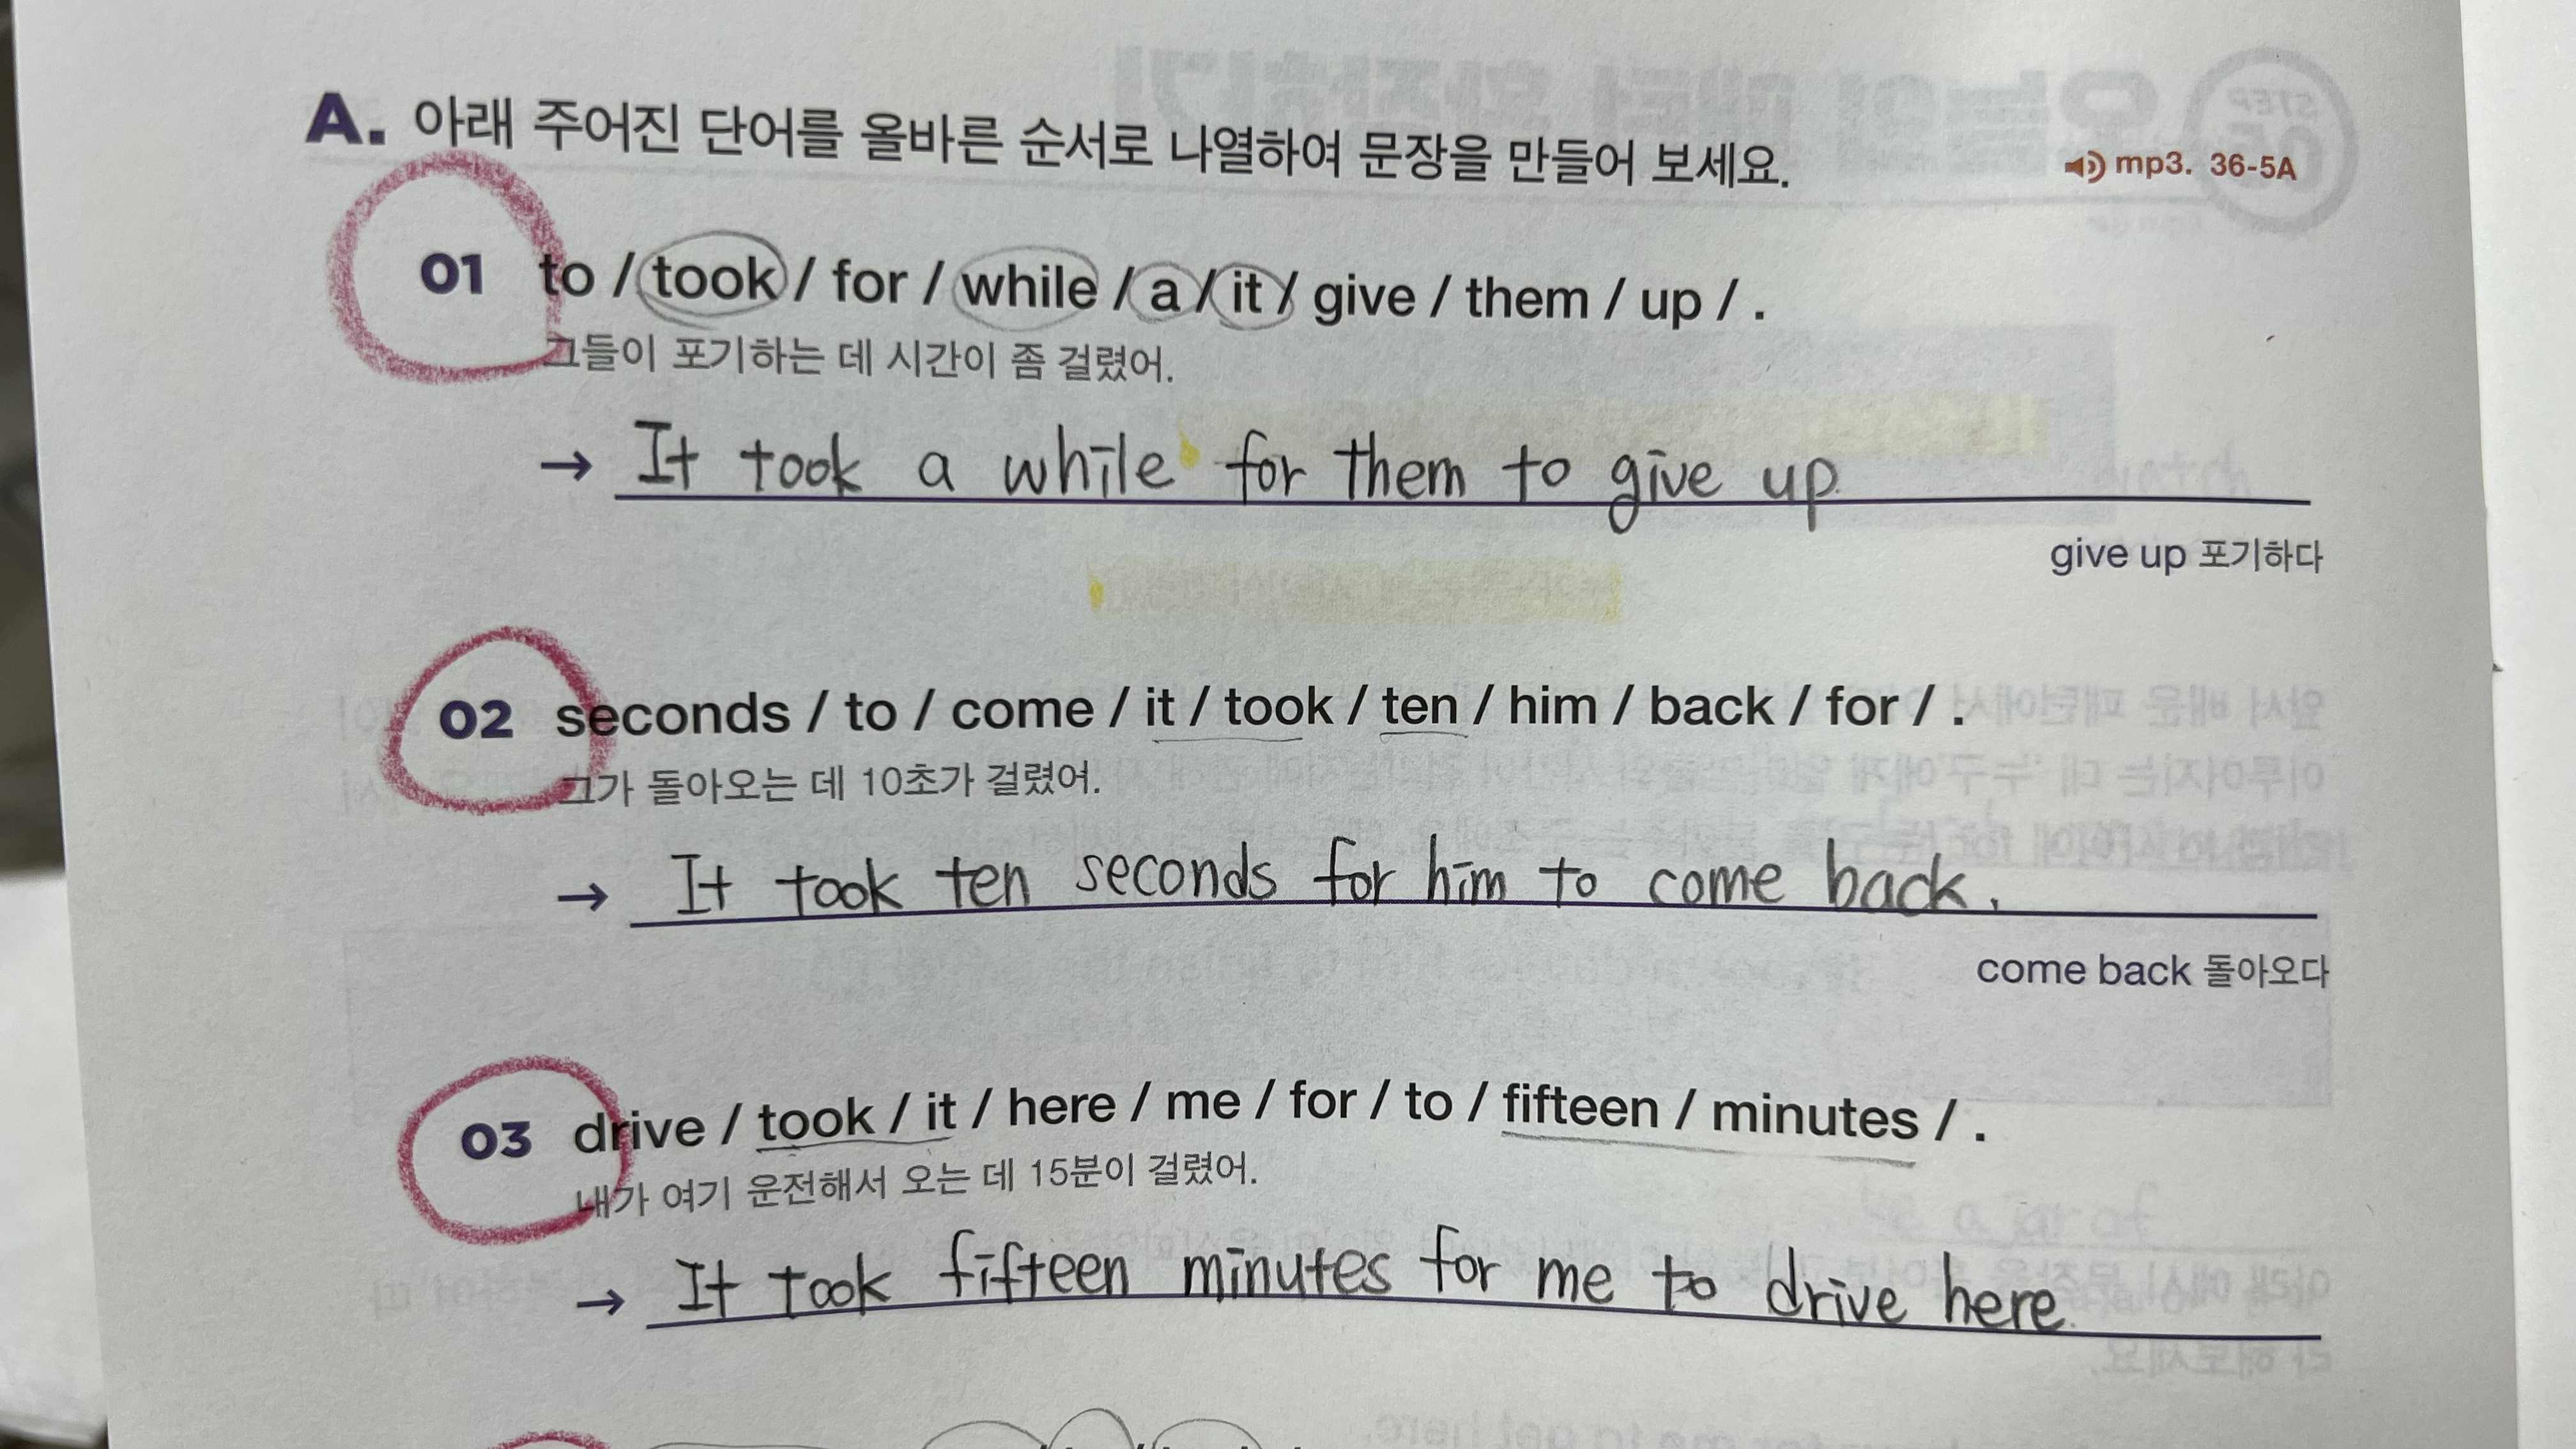 A. 아래 주어진 단어를 올바른 순서로 나열하여 문장을 만들어 보세요.
mp3. 36-5A
01 to / took / for / while / a / it / give / them / up / .
그들이 포기하는 데 시간이 좀 걸렸어.
→ It took a while for them to give up.
give up 포기하다
02 seconds / to / come / it / took / ten / him / back / for / .
그가 돌아오는 데 10초가 걸렸어.
→ It took ten seconds for him to come back.
come back 돌아오다
03 drive / took / it / here / me / for / to / fifteen / minutes / .
내가 여기 운전해서 오는 데 15분이 걸렸어.
→ It took fifteen minutes for me to drive here.